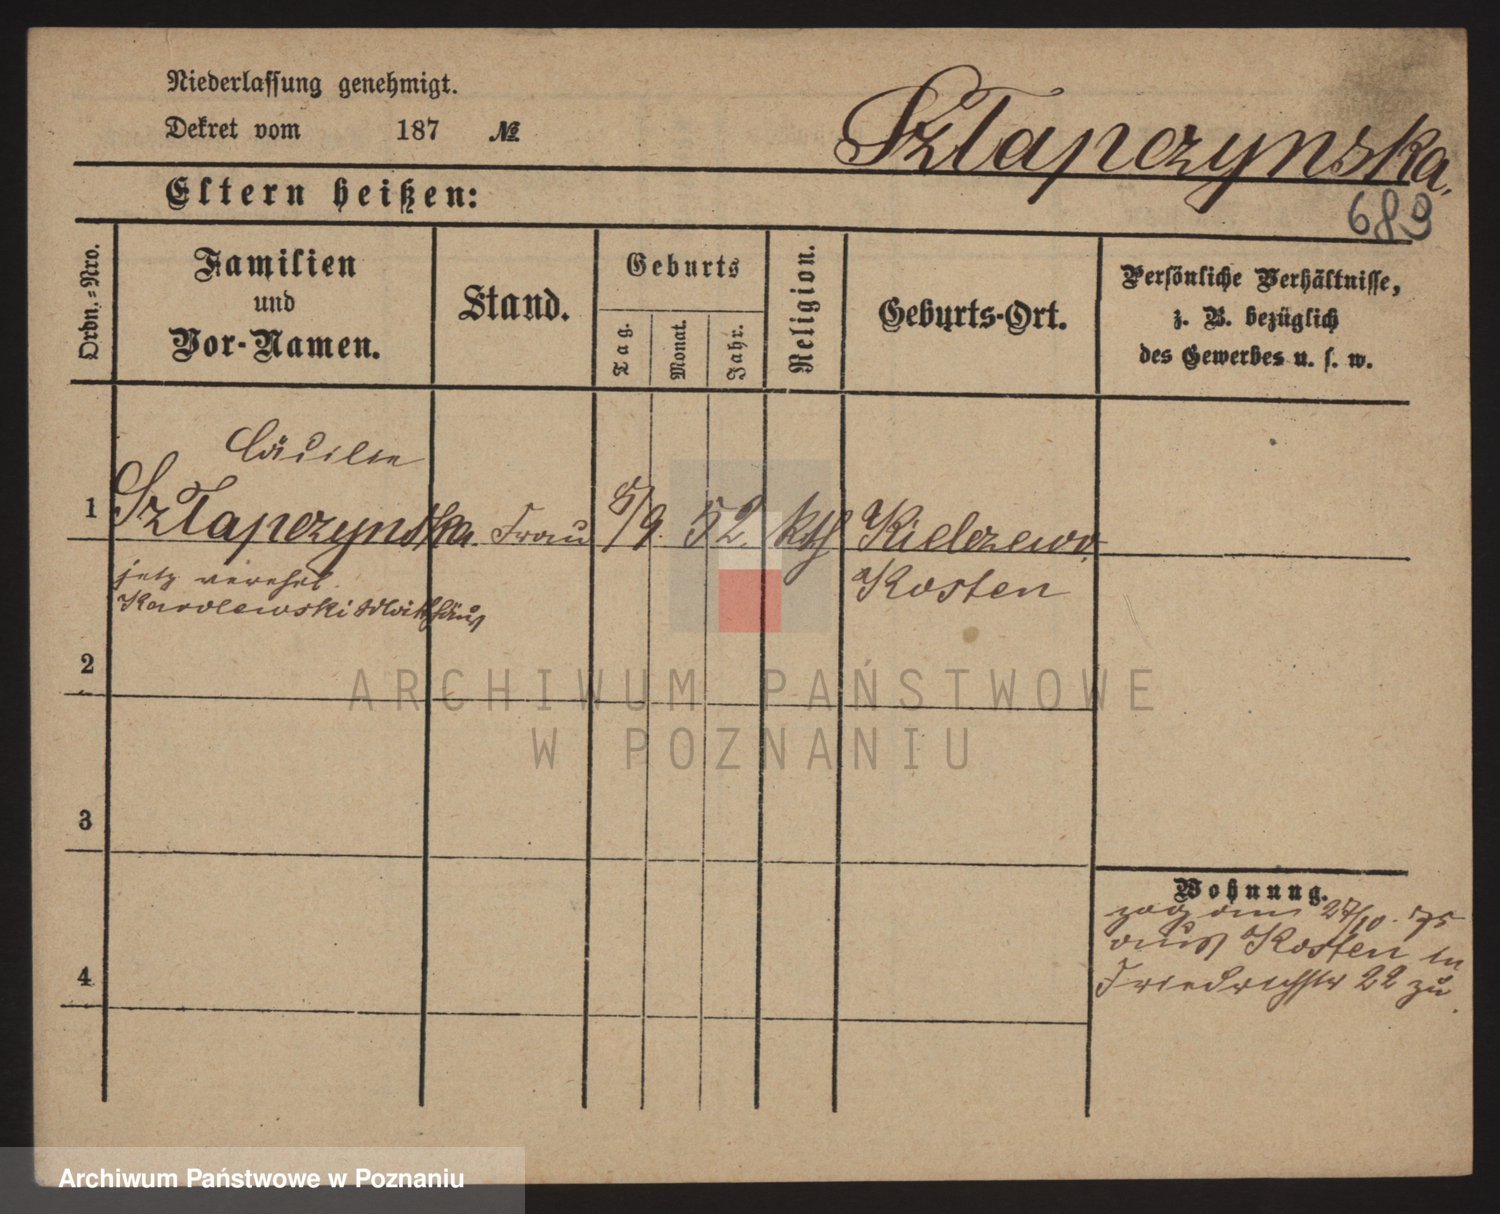 Niederlassung genehmigt.
Dekret vom 187 №
Szłapczynska.
689
Eltern heißen:
Ordn.-Nro.
Familien
und
Vor-Namen.
Stand.
Geburts
Tag.
Monat.
Jahr.
Religion.
Geburts-Ort.
Persönliche Verhältnisse,
z. B. bezüglich
des Gewerbes u. s. w.
Cäcilie
1 Szłapczynska. Frau 5/9. 52. kth Kielczewo,
jetz verehel. Kosten
Karolewski Matthäus
2
3
4
Wohnung.
zog am 27/10. 75
aus Kosten in
Friedrichstr 22 zu.
ARCHIWUM PAŃSTWOWE
W POZNANIU
Archiwum Państwowe w Poznaniu